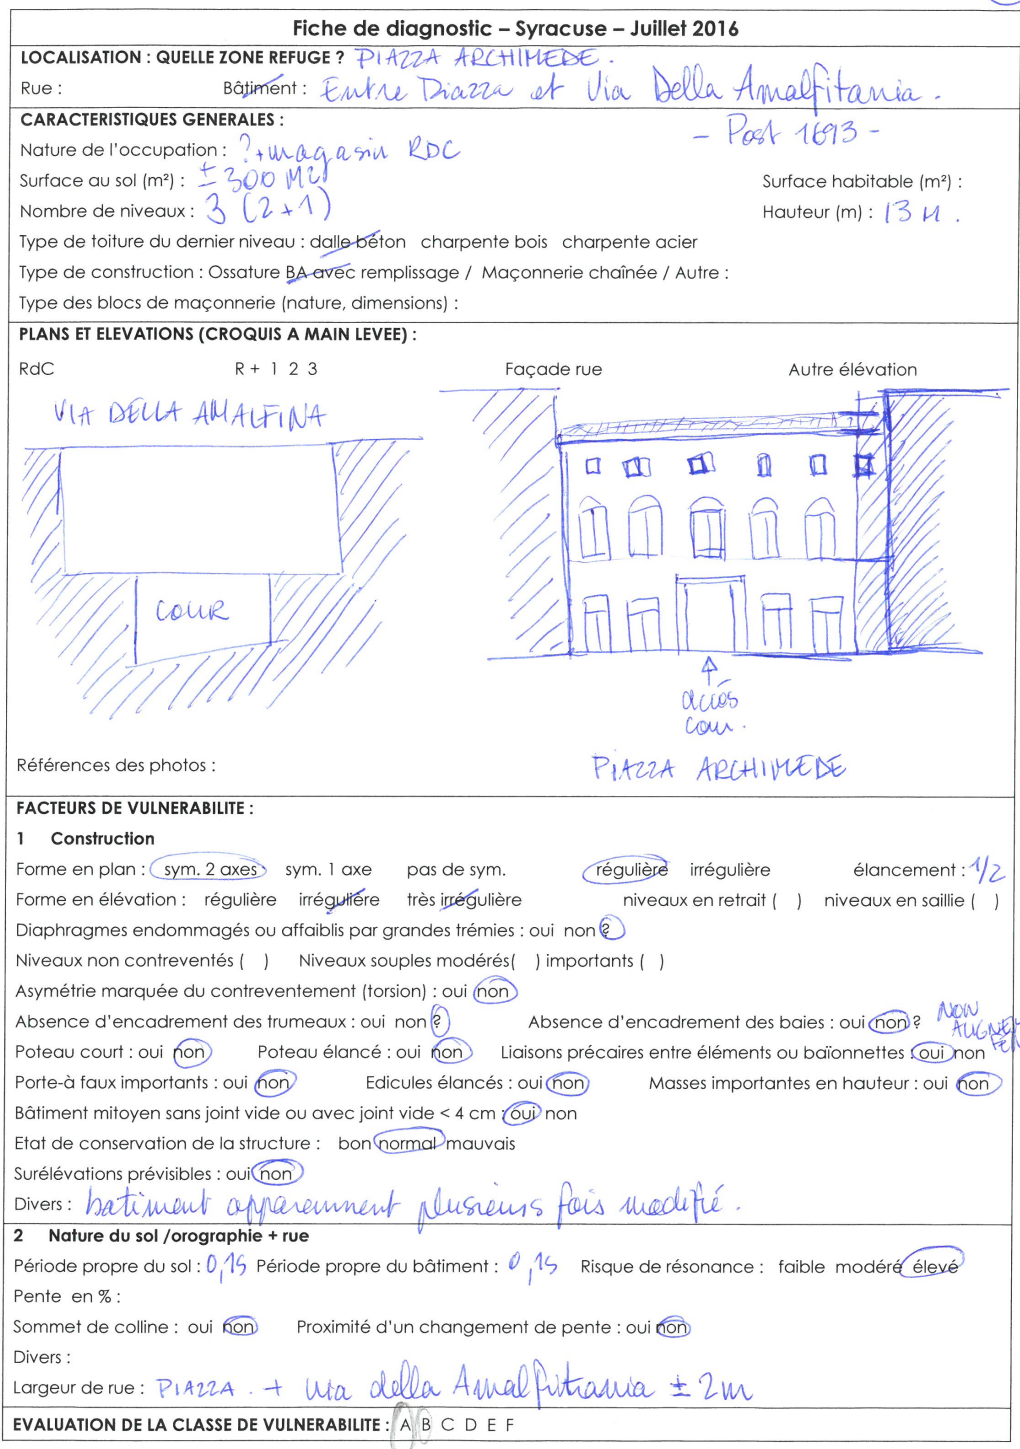 Fiche de diagnostic – Syracuse – Juillet 2016
LOCALISATION : QUELLE ZONE REFUGE ? PIAZZA ARCHIMEDE.
Rue : Bâtiment : Entre Piazza et Via Della Amalfitania.
CARACTERISTIQUES GENERALES : - Post 1693 -
Nature de l'occupation : ? + magasin RDC
Surface au sol (m²) : ± 300 M² Surface habitable (m²) :
Nombre de niveaux : 3 (2+1) Hauteur (m) : 13 M.
Type de toiture du dernier niveau : dalle béton charpente bois charpente acier
Type de construction : Ossature BA avec remplissage / Maçonnerie chaînée / Autre :
Type des blocs de maçonnerie (nature, dimensions) :
PLANS ET ELEVATIONS (CROQUIS A MAIN LEVEE) :
RdC R + 1 2 3 Façade rue Autre élévation
VIA DELLA AMALFINA
COUR
accès
cour.
Références des photos : PIAZZA ARCHIMEDE
FACTEURS DE VULNERABILITE :
1 Construction
Forme en plan : sym. 2 axes sym. 1 axe pas de sym. régulière irrégulière élancement : 1/2
Forme en élévation : régulière irrégulière très irrégulière niveaux en retrait ( ) niveaux en saillie ( )
Diaphragmes endommagés ou affaiblis par grandes trémies : oui non ?
Niveaux non contreventés ( ) Niveaux souples modérés( ) importants ( )
Asymétrie marquée du contreventement (torsion) : oui non
Absence d'encadrement des trumeaux : oui non ? Absence d'encadrement des baies : oui non ? NON
Poteau court : oui non Poteau élancé : oui non Liaisons précaires entre éléments ou baïonnettes : oui non
Porte-à faux importants : oui non Edicules élancés : oui non Masses importantes en hauteur : oui non
Bâtiment mitoyen sans joint vide ou avec joint vide < 4 cm : oui non
Etat de conservation de la structure : bon normal mauvais
Surélévations prévisibles : oui non
Divers : batiment apparemment plusieurs fois modifié.
2 Nature du sol /orographie + rue
Période propre du sol : 0,1s Période propre du bâtiment : 0,1s Risque de résonance : faible modéré élevé
Pente en % :
Sommet de colline : oui non Proximité d'un changement de pente : oui non
Divers :
Largeur de rue : PIAZZA. + via della Amalfitrania ± 2m
EVALUATION DE LA CLASSE DE VULNERABILITE : A B C D E F